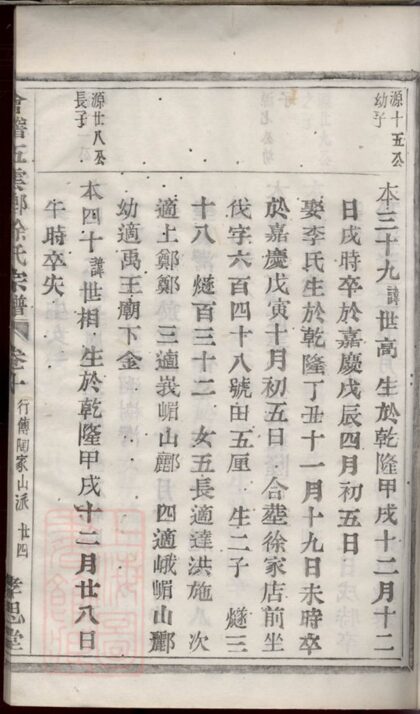 源十五公
幼子
本三十九諱世高 生於乾隆甲戌十二月十二
日戌時卒於嘉慶戊辰四月初五日
娶李氏生於乾隆丁丑十一月十九日未時卒
於嘉慶戊寅十月初五日 合塟徐家店前坐
伐字六百四十八號田五厘 生二子 燧三
十八 燧百三十二 女五長適達洪施 次
適上鄭鄭 三適峩嵋山酈 四適峨嵋山酈
幼適禹王廟下金
源廿八公
長子
本四十諱世相 生於乾隆甲戌十二月廿八日
午時卒失
會稽五雲鄉徐氏宗譜 卷十 行傳陶家山派 廿四 孝思堂